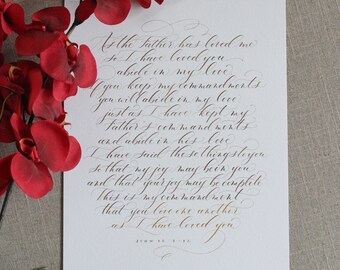 As the Father has loved me
so I have loved you
abide in my love
If you keep my commandments
you will abide in my love
just as I have kept my
Father's commandments
and abide in his love
I have said these things to you
so that my joy may be in you
and that your joy may be complete
this is my commandment
that you love one another
as I have loved you
JOHN 15 : 9-12